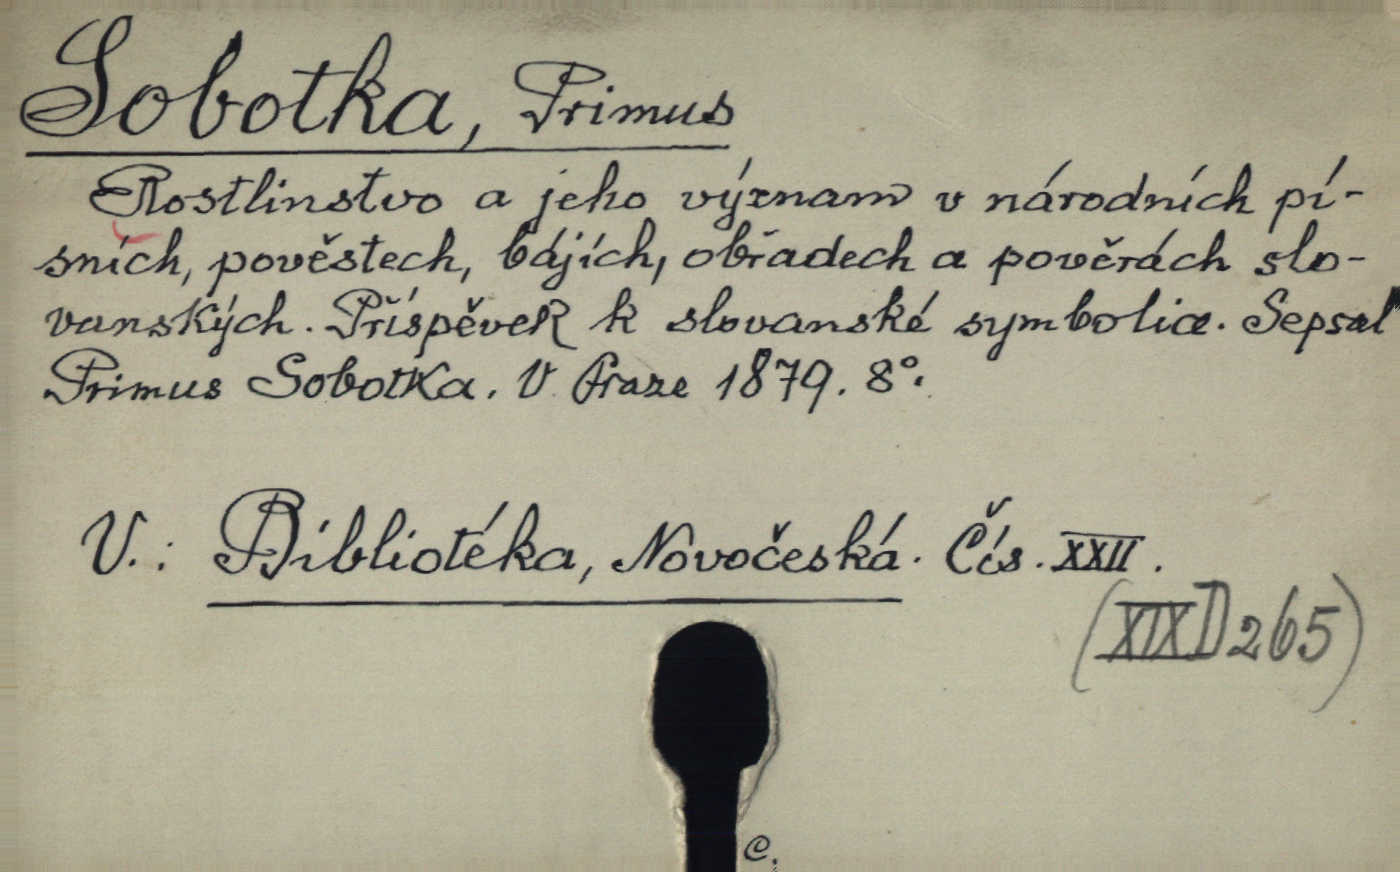 Sobotka, Primus
Rostlinstvo a jeho význam v národních pí-
sních, pověstech, bájích, obřadech a pověrách slo-
vanských. Příspěvek k slovanské symbolice. Sepsal
Primus Sobotka. V Praze 1879. 8°.
V.: Bibliotéka, Novočeská. Čís. XXII.
(XIX D 265)
C.